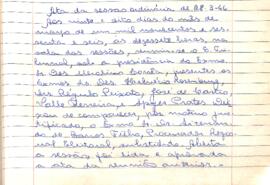 Ata da sessão ordinária de 28-3-66
Aos vinte e oito dias do mês de
março de um mil novecentos e ses-
senta e seis, às dezessete horas, na
sala das sessões, reuniu-se o E. Tri-
bunal, sob a presidência do Exmo.
Sr. Des. Costa, presentes os
Exmos. Srs. Des.
Drs. Peixoto, José de Castro,
Valle Ferreira e Prates. Dei-
xou de comparecer, por motivo jus-
tificado, o Exmo. Sr. Dr.
de Barros Filho, Procurador Regio-
nal Eleitoral, substituto. Aberta
a sessão, foi lida e aprovada
a ata da reunião anterior.